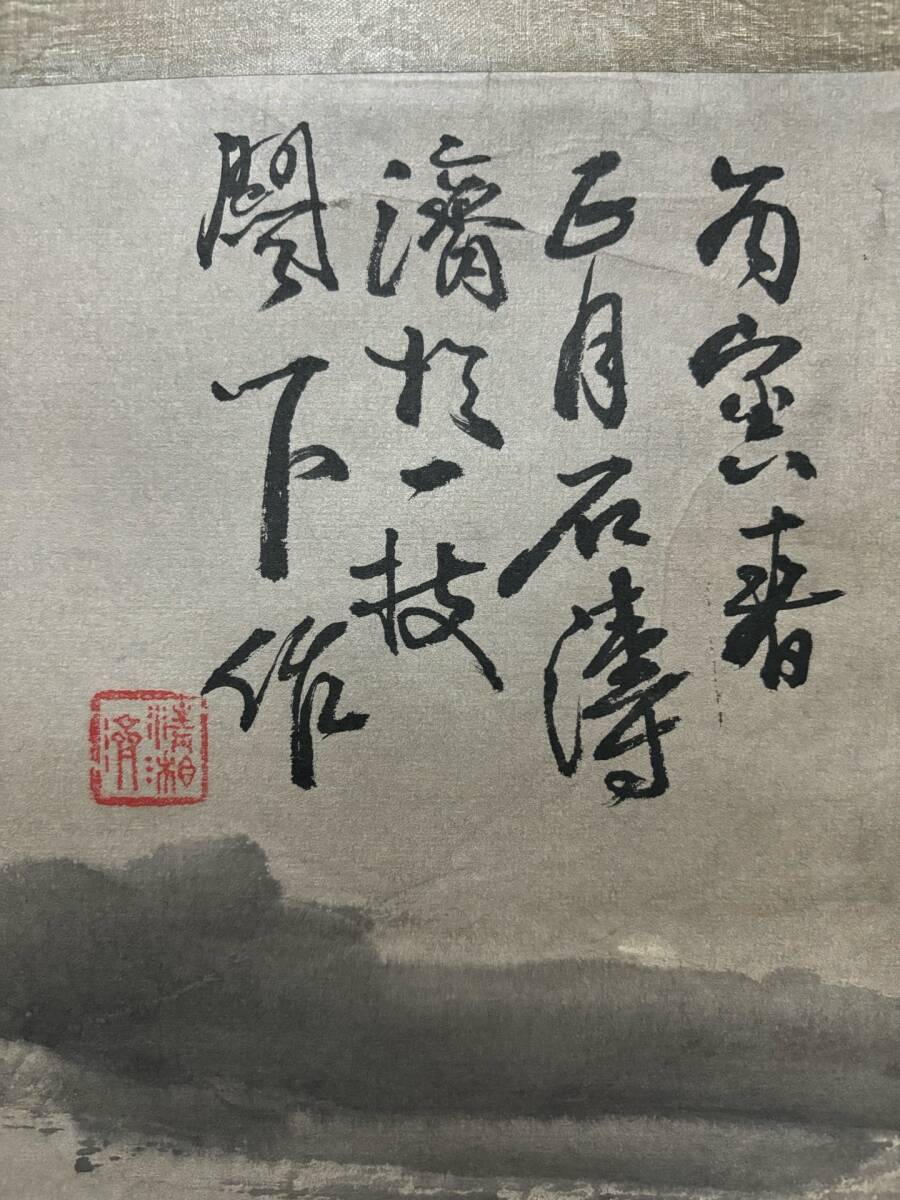 寅春
正月石濤
濟於一枝
閣下作
清湘
濟